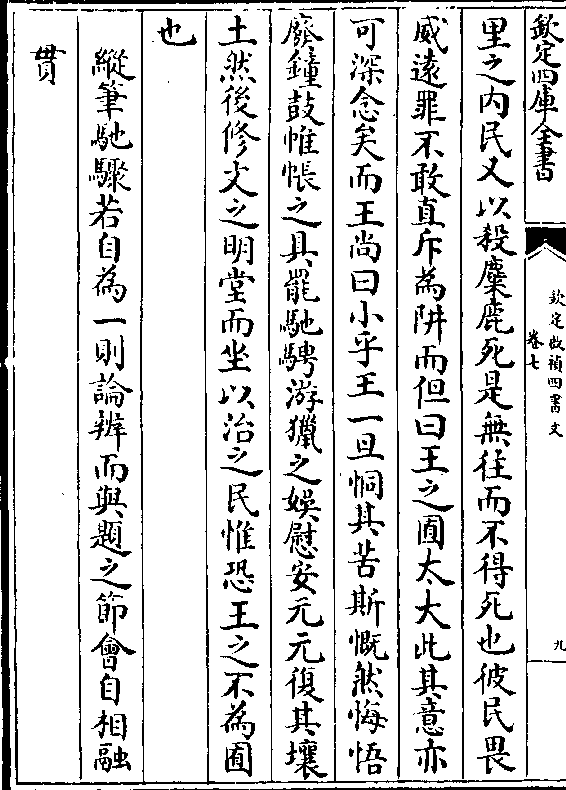 欽定四庫全書
欽定啟禎四書文
卷七
九
里之内民又以殺麋鹿死是無往而不得死也彼民畏
威遠罪不敢直斥為阱而但曰王之囿太大此其意亦
可深念矣而王尚曰小乎王一旦恫其苦斯慨然悔悟
廢鐘鼓帷帳之具罷馳騁游獵之娛慰安元元復其壤
土然後修文之明堂而坐以治之民惟恐王之不為囿
也
縱筆馳驟若自為一則論辨而與題之節會自相融
貫